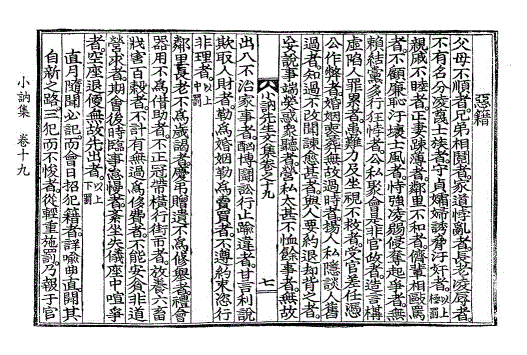 惡籍
父母不順者。兄弟相鬩者。家道悖亂者。長老凌辱者。
不有名分凌蔑士族者。守貞孀婦誘脅汙奸者。以上極罰
親戚不睦者。正妻踈薄者。鄰里不和者。儕輩相敺罵
者。不顧廉恥汙壞士風者。恃強凌弱侵奪起爭者。無
賴結黨多行狂悖者。公私聚會是非官政者。造言構
虛陷人罪累者。患難力及坐視不救者。受官差任憑
公作弊者。婚姻喪葬無故過時者。揚人私隱談人舊
過者。知過不改聞諫愈甚者。與人要約退却背之者。
妄說事端熒惑衆聽者。營私太甚不恤餘事者。無故
小訥先生文集卷之十九 七
出入不治家事者。酗博鬪訟行止踰違者。甘言利說
欺取人財者。勒爲婚姻勒爲賣買者。不遵約束恣行
非理者。以上中罰
鄰里長老不爲歲謁者。慶弔贈遺不爲修擧者。禮會
器用不爲借助者。不正冠帶橫行街市者。放養六畜
戕害百穀者。不計有無過爲侈費者。不能安貧非道
營求者。期會後時臨事怠慢者。紊坐失儀座中喧爭
者。空座退便無故先出者。以上下罰
直月隨聞必記。而會日招犯籍者。詳喩曲直。開其
自新之路。三犯而不悛者。從輕重施罰。乃報于官
小訥集 卷十九